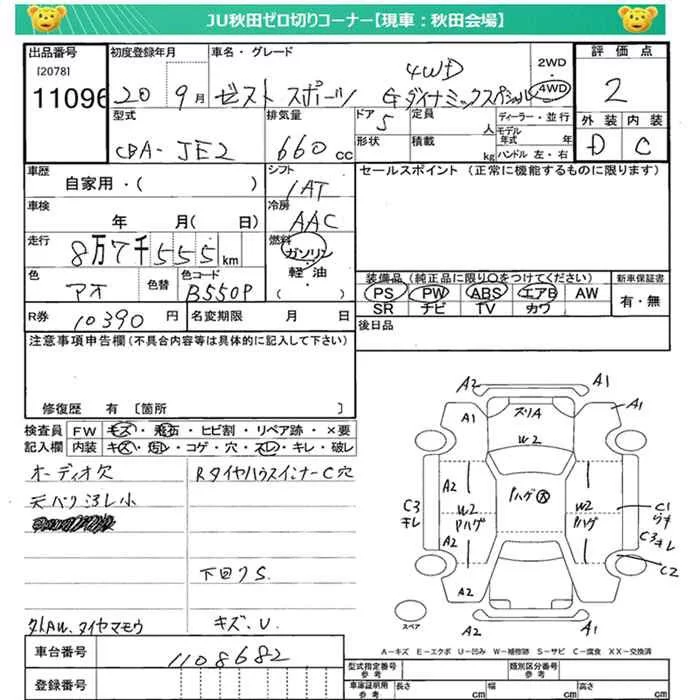 JU秋田ゼロ切りコーナー【現車：秋田会場】
出品番号 [2078] 11096
初度登録年月 20 9月
車名・グレード ゼスト スポーツ 4WD Gダイナミックスペシャル
2WD 4WD
評価点 2
外装 D 内装 C
型式 CBA-JE2
排気量 660cc
ドア 5 定員 人
形状 積載 kg
ディーラー・並行
モデル年式 年
ハンドル 左・右
車歴 自家用・( )
シフト 1AT
セールスポイント（正常に機能するものに限ります）
車検 年 月( 日)
冷房 AAC
走行 8万7千555km
燃料 ガソリン 軽油 ( )
色 アオ 色替 色コード B550P
装備品（純正品に限り○をつけてください）
PS PW ABS エアB AW
SR ナビ TV カワ
新車保証書 有・無
R券 10390円 名変期限 月 日
後日品
注意事項申告欄（不具合内容等は具体的に記入して下さい）
修復歴 有〔箇所 〕
検査員記入欄
FW キズ・飛石・ヒビ割・リペア跡・×要
内装 キズ・汚レ・コゲ・穴・スレ・キレ・破レ
オーディオ欠
RタイヤハウスインナーC穴
下回りS.
タイヤマモウ
キズ、U.
A2 A1
A1 ズリA A1 A1
W2
A2 W2 Pハゲ Pハゲ大 W2 Pハゲ A2
C3キレ
C1
C3キレ
C2
A2 A1
A2 A1
スペア
A-キズ E-エクボ U-凹み W-補修跡 S-サビ C-腐食 XX-交換済
車台番号 1108682
登録番号
型式指定番号 参考 類別区分番号 参考
車庫証明用 参考 長さ cm 幅 cm 高さ cm